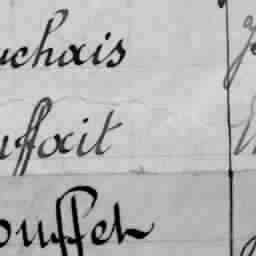 uchais
uffait
ouffet